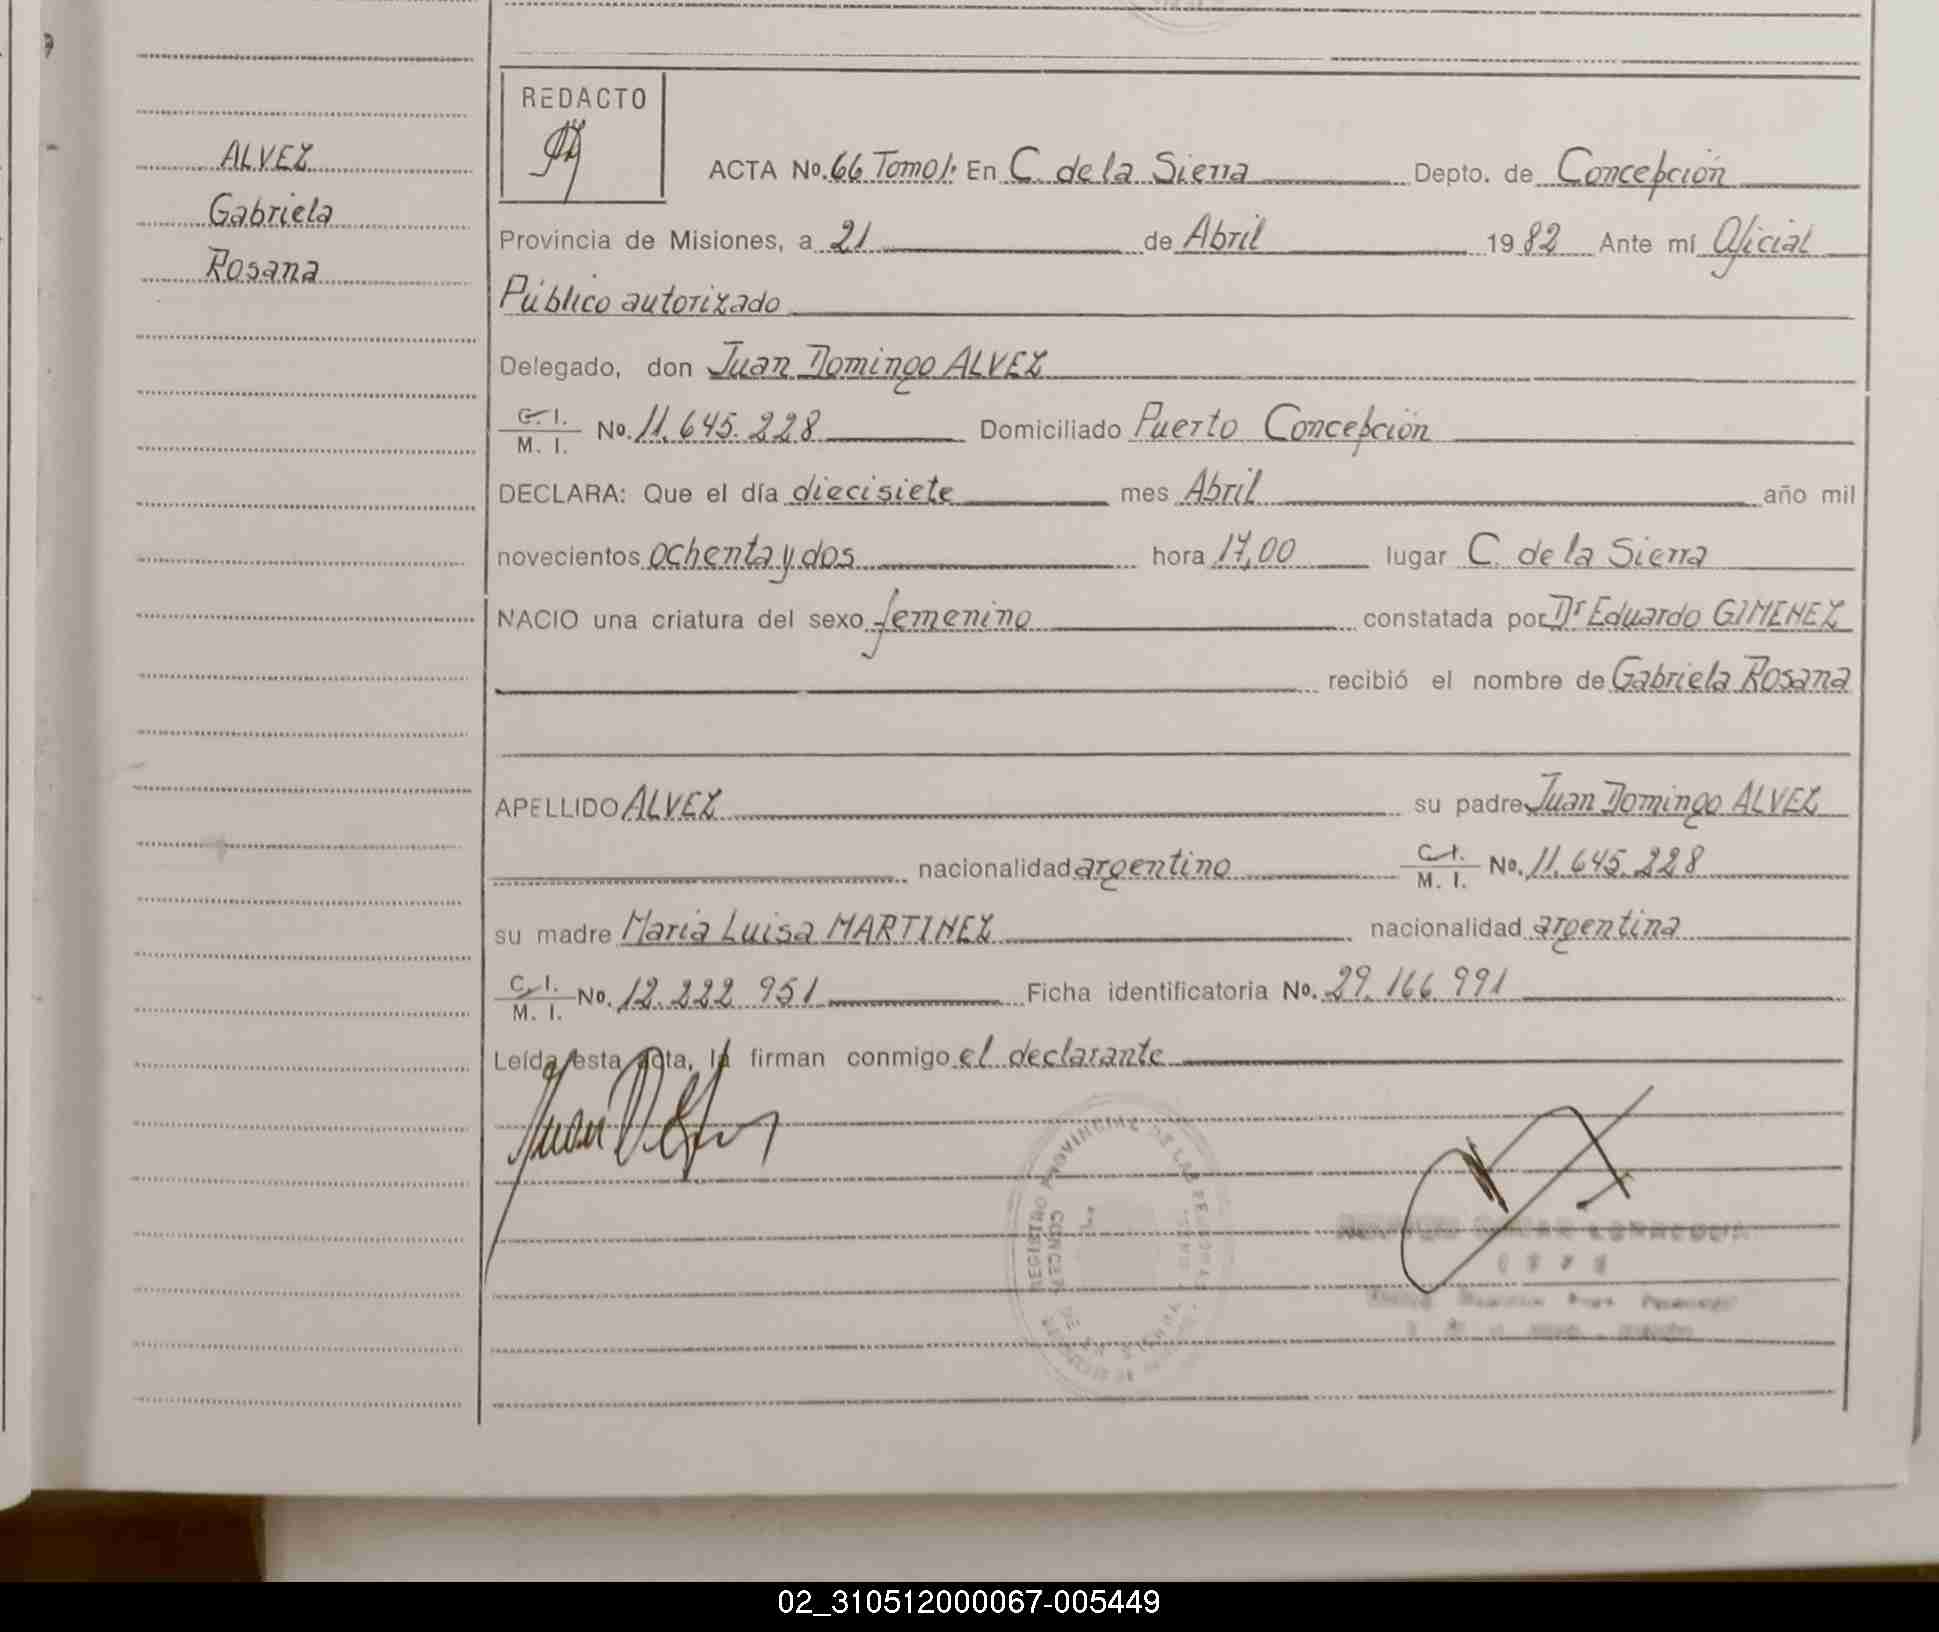 ALVEZ
Gabriela
Rosana
REDACTO
ACTA No. 66 Tomo 1. En C. de la Sierra Depto. de Concepción
Provincia de Misiones, a 21 de Abril 1982 Ante mí Oficial
Público autorizado
Delegado, don Juan Domingo ALVEZ
C. I. / M. I. No. 11.645.228 Domiciliado Puerto Concepción
DECLARA: Que el día diecisiete mes Abril año mil
novecientos ochenta y dos hora 17,00 lugar C. de la Sierra
NACIO una criatura del sexo femenino constatada por Dr Eduardo GIMENEZ
recibió el nombre de Gabriela Rosana
APELLIDO ALVEZ su padre Juan Domingo ALVEZ
nacionalidad argentino C. I. / M. I. No. 11.645.228
su madre Maria Luisa MARTINEZ nacionalidad argentina
C. I. / M. I. No. 12.222.951 Ficha identificatoria No. 29.166.991
Leída esta acta, la firman conmigo el declarante
REGISTRO PROVINCIAL DE LAS PERSONAS
02_310512000067-005449